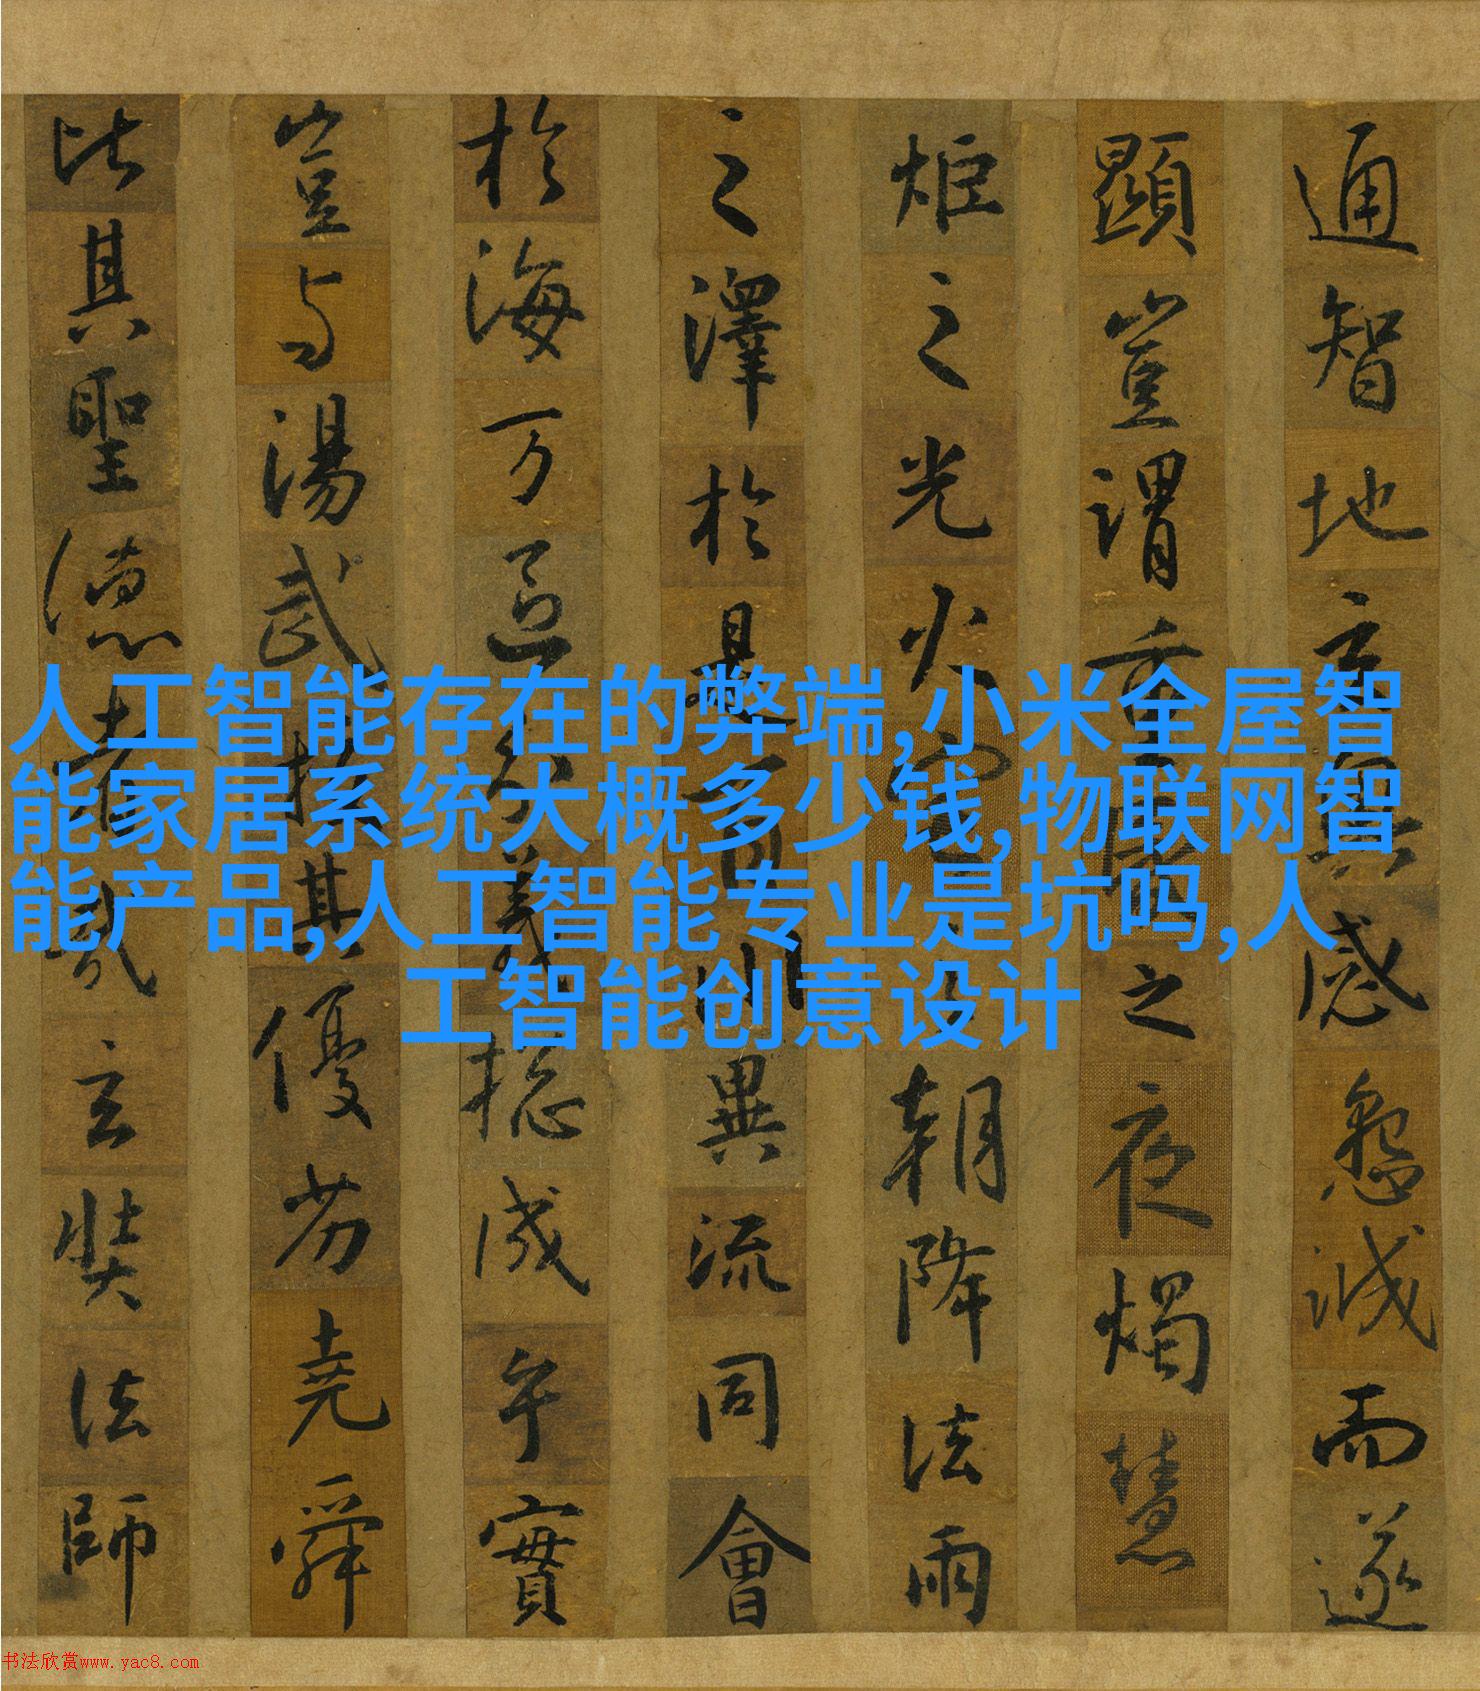 通智地玄奧感懇誠而遂
顯豈謂重昏之夜燭慧
炬之光火宅之朝降法雨
之澤於是百川異流同會
於海万區分義揔成乎實
豈与湯武校其優劣堯舜
比其聖德者哉玄奘法師
人工智能存在的弊端,小米全屋智
能家居系统大概多少钱,物联网智
能产品,人工智能专业是坑吗,人
工智能创意设计
书法欣赏www.yac8.com